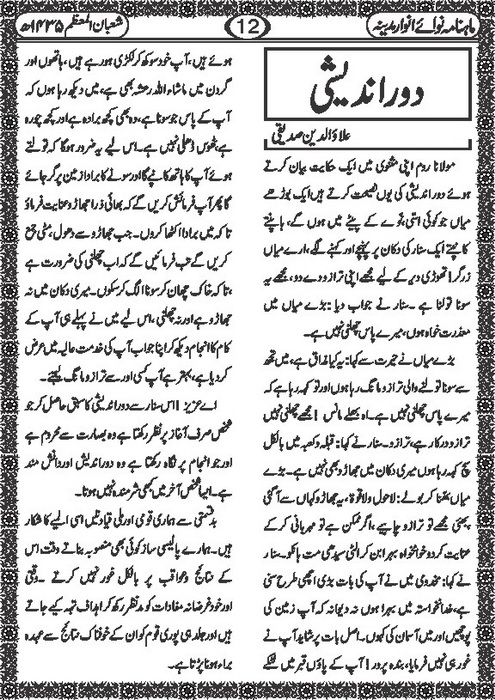 ماہنامہ نوائے انوار مدینہ
12
شعبان المعظم ۱۴۳۵ھ
دور اندیشی
علاؤ الدین صدیقی
مولانا روم اپنی مثنوی میں ایک حکایت بیان کرتے
ہوئے دور اندیشی کی یوں نصیحت کرتے ہیں ایک بوڑھے
میاں جو کوئی اسی، نوے کے پیٹے میں ہوں گے، ہانپتے
کانپتے ایک سنار کی دکان پر پہنچے اور کہنے لگے، ارے میاں
زرگر! تھوڑی دیر کے لیے مجھے اپنی ترازو دے دو، مجھے یہ
سونا تولنا ہے۔ سنار نے جواب دیا: بڑے میاں میں
معذرت خواہ ہوں، میرے پاس چھلنی نہیں ہے۔
بڑے میاں نے حیرت سے کہا: یہ کیا مذاق ہے، میں تجھ
سے سونا تولنے والی ترازو مانگ رہا ہوں اور تو کہہ رہا ہے کہ
میرے پاس چھلنی نہیں ہے۔ اہ بھلے مانس! مجھے چھلنی نہیں
ترازو درکار ہے، ترازو۔ سنار نے کہا: قبلہ و کعبہ میں بالکل
سچ کہہ رہا ہوں میری دکان میں جھاڑو بھی نہیں ہے۔ بڑے
میاں بھنا کر بولے: لاحول ولا قوۃ، یہ جھاڑو کہاں سے آگئی
بھئی مجھے تو ترازو چاہیے، اگر ممکن ہے تو مہربانی کر کے
عنایت کر دو خوامخواہ بہرا بن کر الٹی سیدھی مت ہانکو۔ سنار
نے کہا: مخدومی میں نے آپ کی بات بڑی اچھی طرح سنی
ہے، خدانخواستہ میں بہرا ہوں نہ دیوانہ کہ آپ زمین کی
پوچھیں اور میں آسمان کی کہوں۔ اصل بات پر شاید آپ نے
غور نہیں فرمایا، بندہ پرور! آپ کے پاؤں قبر میں لٹکے
ہوئے ہیں، آپ خود سوکھ کر لکڑی ہو رہے ہیں، ہاتھوں اور
گردن میں ماشاء اللہ رعشہ بھی ہے، میں دیکھ رہا ہوں کہ
آپ کے پاس جو سونا ہے، وہ بھی کچھ برادہ ہے اور کچھ چورہ
ہے، ٹھوس ڈھلی نہیں ہے۔ اس لیے یہ ضرور ہو گا کہ تولتے
ہوئے آپ کا ہاتھ کانپے گا اور سونے کا برادہ زمین پر گر جائے
گا پھر آپ فرمائش کریں گے کہ بھائی ذرا جھاڑو عنایت فرماؤ
تاکہ میں برادہ اکٹھا کروں۔ جب جھاڑو سے دھول، مٹی جمع
کریں گے تب فرمائیں گے کہ اب چھلنی کی ضرورت ہے
، تاکہ خاک چھان کر سونا الگ کر سکوں۔ میری دکان میں نہ
جھاڑو ہے اور نہ چھلنی، اس لیے میں نے پہلے ہی آپ کے
کام کا انجام دیکھ کر اپنا جواب آپ کی خدمت عالیہ میں عرض
کر دیا ہے، بہتر ہے آپ کسی اور سے ترازو مانگ لیجئے۔
اے عزیز! اس سنار سے دور اندیشی کا سبق حاصل کر جو
شخص صرف آغاز پر نظر رکھتا ہے وہ بصارت سے محروم ہے
اور جو انجام پر نگاہ رکھتا ہے وہ دور اندیش اور دانش مند
ہے۔ ایسا شخص آخر میں کبھی شرمندہ نہیں ہوتا۔
بد قسمتی سے ہماری قومی اور ملی قیادتیں اسی المیے کا شکار
ہیں۔ ہمارے پالیسی ساز کوئی بھی منصوبہ بناتے وقت اس
کے نتائج و عواقب پر بالکل غور نہیں کرتے ۔ وقتی
اور خود غرضانہ مفادات کو مد نظر رکھ کر اہداف تہہ کیے جاتے
ہیں اور جلد ہی پوری قوم کو ان کے خوفناک نتائج سے عہدہ
براہ ہونا پڑتا ہے۔